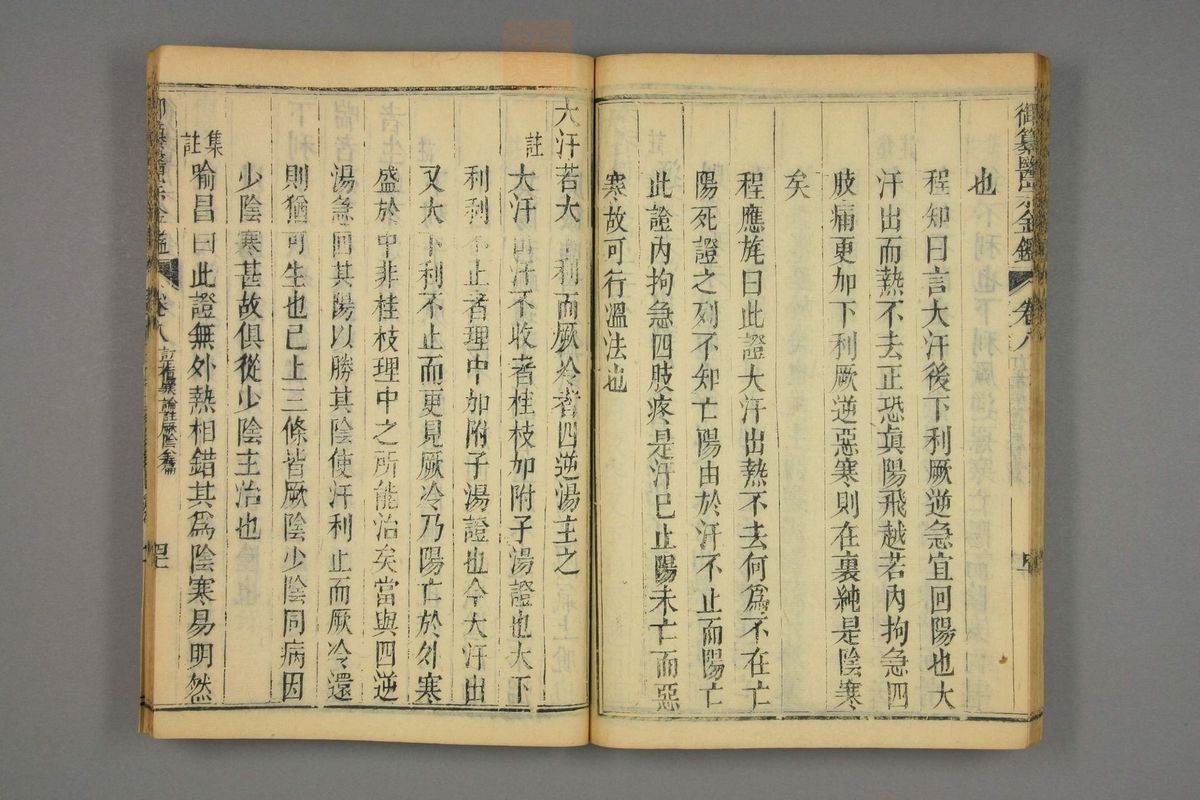 御纂醫宗金鑑 卷八
也
程知曰言大汗後下利厥逆急宜回陽也大
汗出而熱不去正恐眞陽飛越若內拘急四
肢痛更加下利厥逆惡寒則在裏純是陰寒
矣
程應旄曰此證大汗出熱不去何爲不在亡
陽死證之列不知亡陽由於汗不止而陽亡
此證內拘急四肢疼是汗已止陽未亡而惡
寒故可行溫法也
大汗若大下利而厥冷者四逆湯主之
註 大汗出汗不收者桂枝加附子湯證也大下
利利不止者理中加附子湯證也今大汗出
又大下利不止而更見厥冷乃陽亡於外寒
盛於中非桂枝理中之所能治矣當與四逆
湯急回其陽以勝其陰使汗利止而厥冷還
則猶可生也已上三條皆厥陰少陰同病因
少陰寒甚故俱從少陰主治也
集註 喻昌曰此證無外熱相錯其爲陰寒易明然
御纂醫宗金鑑 卷八